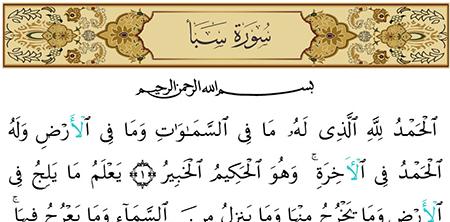 سُورَةُ سَبَأ
بِسْمِ اللهِ الرَّحْمٰنِ الرَّحِيمِ
الْحَمْدُ لِلَّهِ الَّذِى لَهُۥ مَا فِى السَّمَـٰوَٰتِ وَمَا فِى الْأَرْضِ وَلَهُ
الْحَمْدُ فِى الْـَٔاخِرَةِ ۚ وَهُوَ الْحَكِيمُ الْخَبِيرُ ﴿١﴾ يَعْلَمُ مَا يَلِجُ فِى
الْأَرْضِ وَمَا يَخْرُجُ مِنْهَا وَمَا يَنزِلُ مِنَ السَّمَآءِ وَمَا يَعْرُجُ فِيهَا ۚ